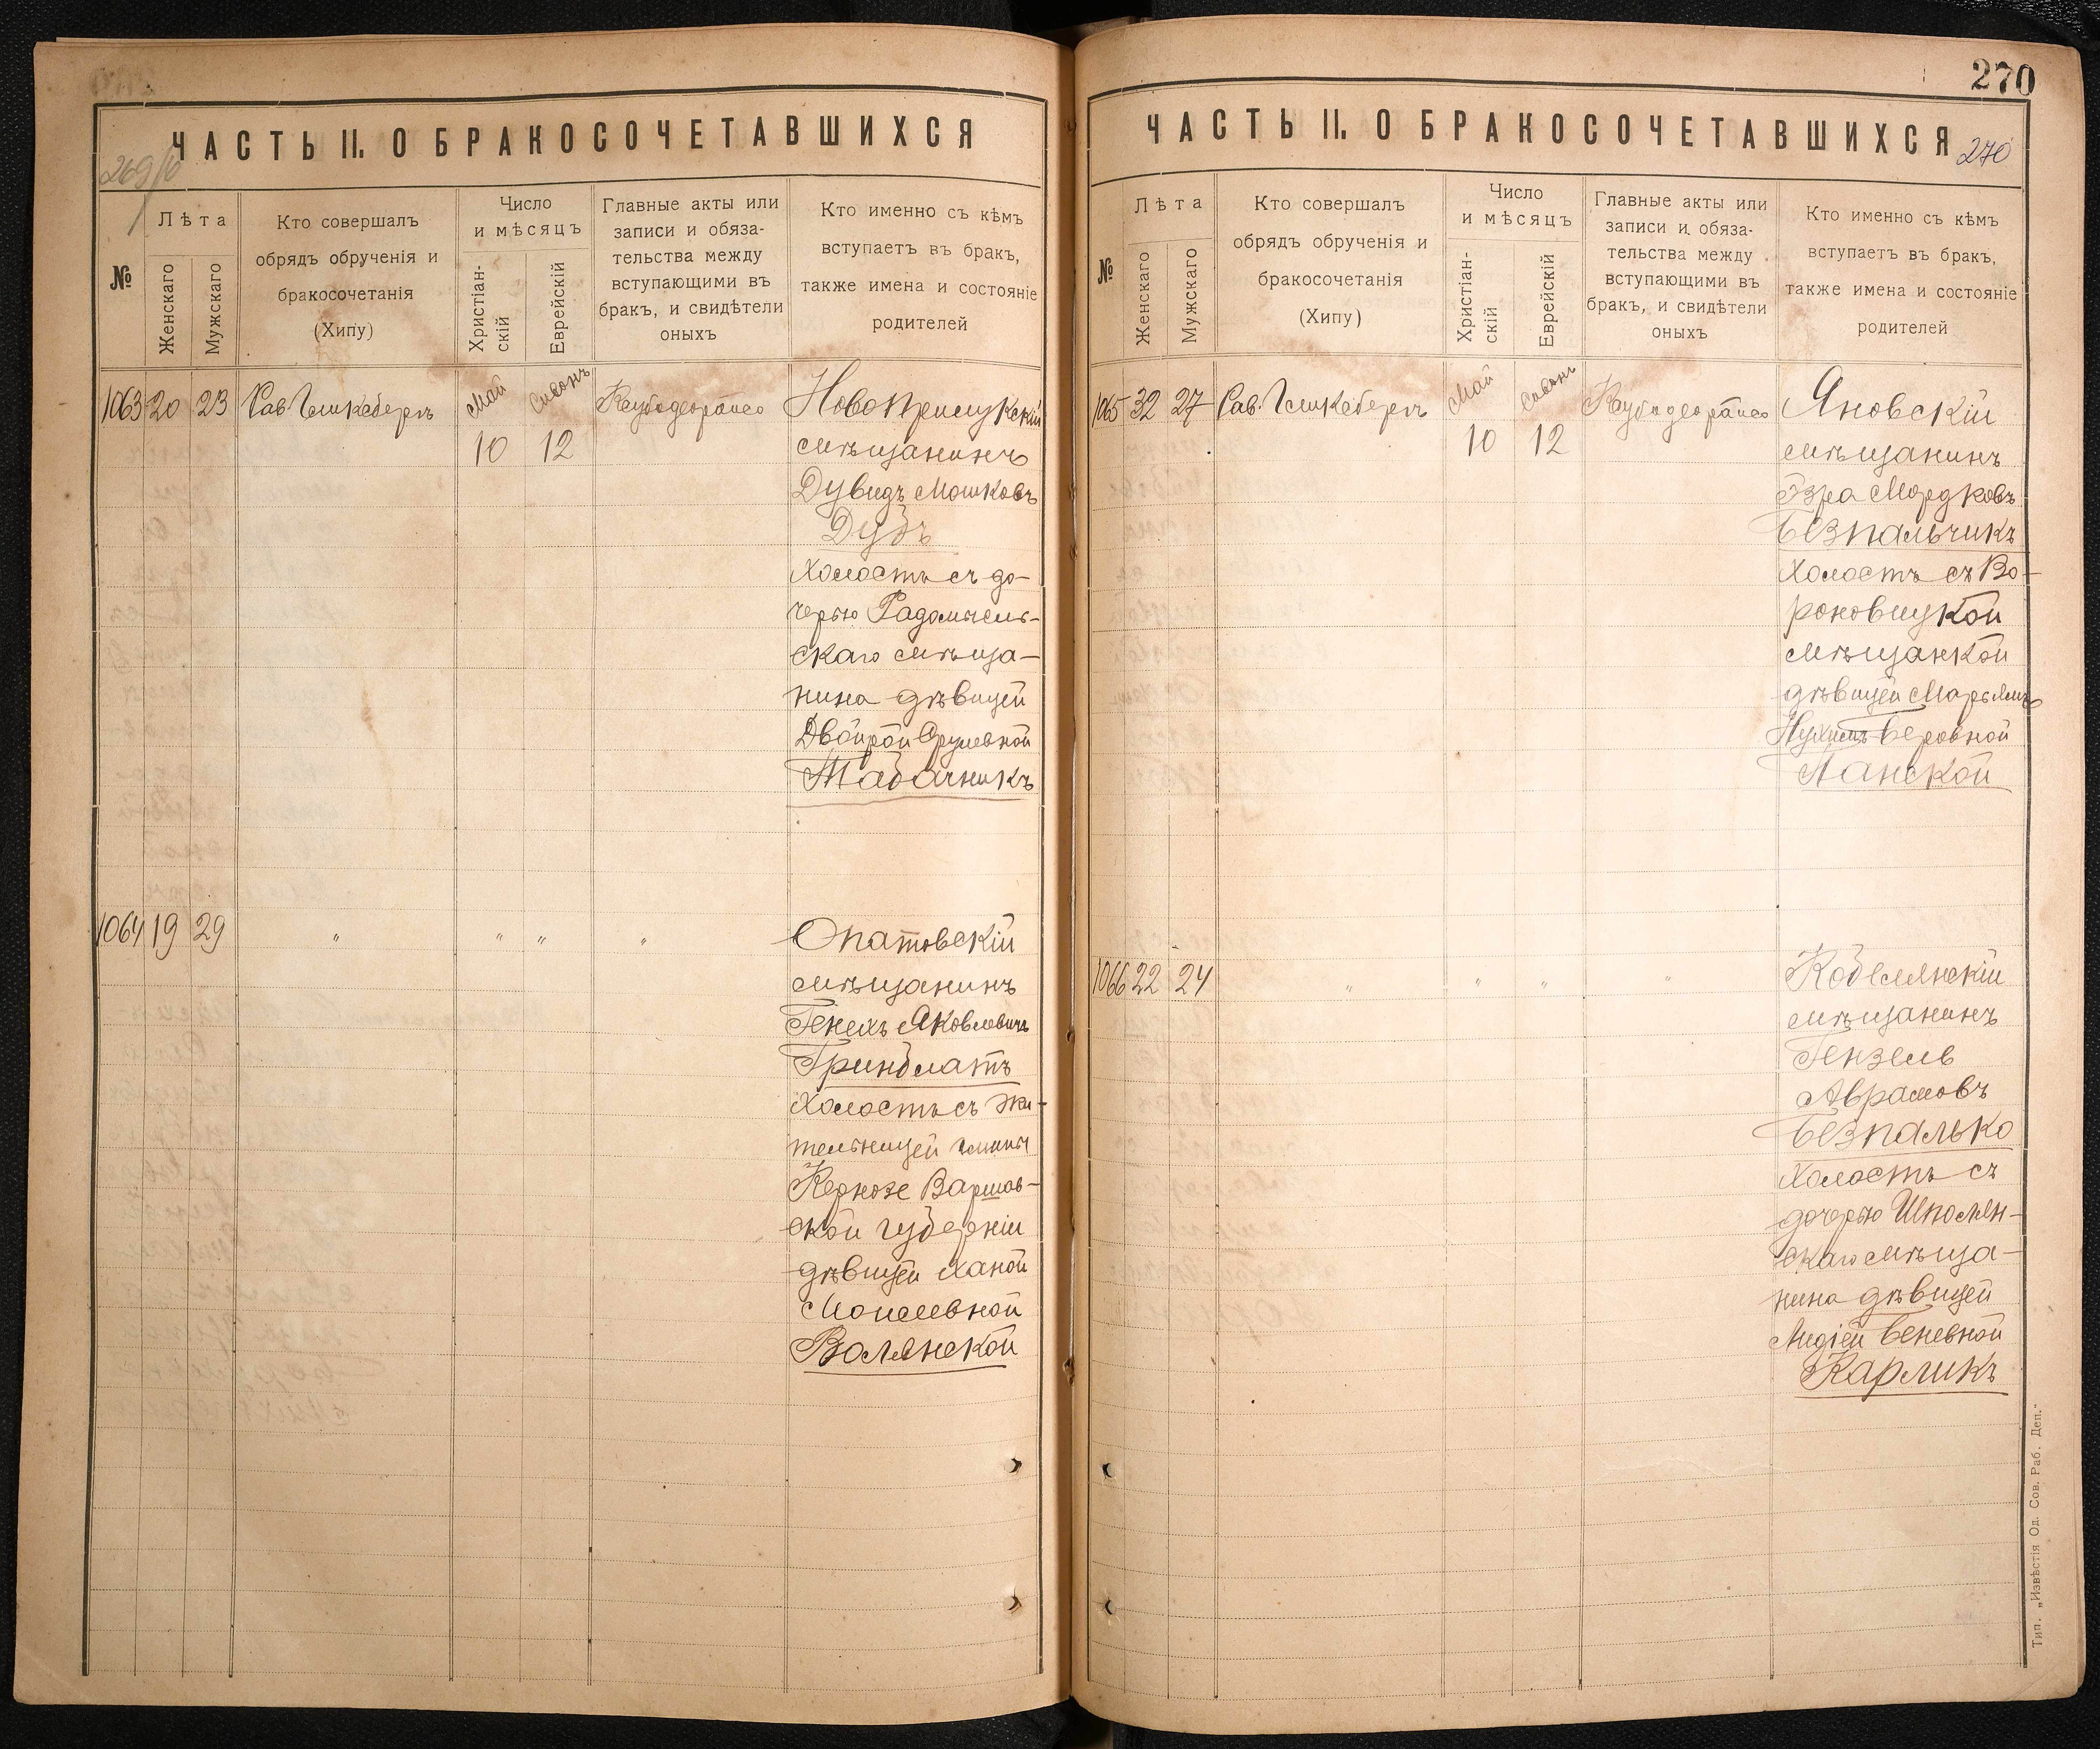 ЧАСТЬ II. О БРАКОСОЧЕТАВШИХСЯ
№
Лѣта
Женскаго
Мужскаго
Кто совершалъ
обрядъ обрученія и
бракосочетанія
(Хипу)
Число
и мѣсяцъ
Христіан-
скій
Еврейскій
Главные акты или
записи и обяза-
тельства между
вступающими въ
бракъ, и свидѣтели
оныхъ
Кто именно съ кѣмъ
вступаетъ въ бракъ,
также имена и состояніе
родителей
1063 20 23 Май Сивонъ
10 12
мѣщанинъ
Дувидъ Мошковъ
Дубъ
Холостъ съ до-
черью Радомысль-
скаго мѣща-
нина дѣвицей
Двойрой Срулевной
Табачникъ
1064 19 29 " " " " Опатовскій
мѣщанинъ
Генехъ Яковлевичъ
Гринблатъ
Холостъ съ жи-
тельницей гмины
Кернозе Варшав-
ской губерніи
дѣвицей Ханой
Мошевной
Волянской
270
ЧАСТЬ II. О БРАКОСОЧЕТАВШИХСЯ
270
№
Лѣта
Женскаго
Мужскаго
Кто совершалъ
обрядъ обрученія и
бракосочетанія
(Хипу)
Число
и мѣсяцъ
Христіан-
скій
Еврейскій
Главные акты или
записи и обяза-
тельства между
вступающими въ
бракъ, и свидѣтели
оныхъ
Кто именно съ кѣмъ
вступаетъ въ бракъ,
также имена и состояніе
родителей
1065 32 27 Май Сивонъ Яновскій
10 12
мѣщанинъ
Эзра Мордковъ
Безпальчикъ
Холостъ съ Во-
роновицкой
мѣщанкой
дѣвицей Марьямъ
Беровной
Ланской
1066 22 24 " " " " Кобелянскій
мѣщанинъ
Гензель
Аврамовъ
Безпалько
Холостъ съ
дочерью Шполян-
скаго мѣща-
нина дѣвицей
Лидіей Беневной
Карликъ
Тип. „Извѣстія Од. Сов. Раб. Деп."